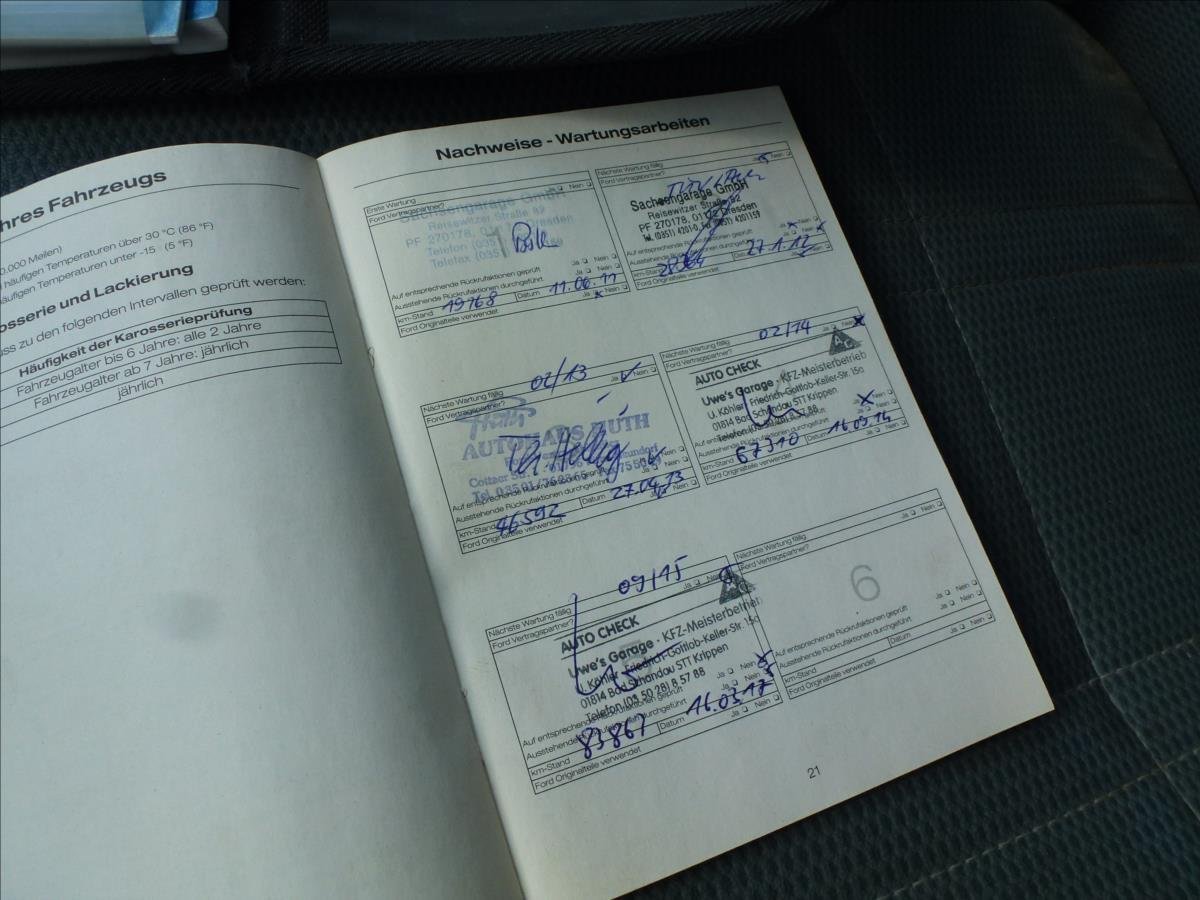 hres Fahrzeugs
0.000 Meilen)
häufigen Temperaturen über 30 °C (86 °F)
äufigen Temperaturen unter -15 (5 °F)
osserie und Lackierung
ss zu den folgenden Intervallen geprüft werden:
Häufigkeit der Karosserieprüfung
Fahrzeugalter bis 6 Jahre: alle 2 Jahre
Fahrzeugalter ab 7 Jahre: jährlich
jährlich
Nachweise - Wartungsarbeiten
Erste Wartung
Ford Vertragspartner? Ja Nein
Sachsengarage GmbH
Reisewitzer Straße 82
PF 270178, 01 Dresden
Telefon (035
Telefax (035
1
Auf entsprechende Rückrufaktionen geprüft Ja Nein
Ausstehende Rückrufaktionen durchgeführt Ja Nein
km-Stand 19768 Datum 11.06.11
Ford Originalteile verwendet Ja Nein
Nächste Wartung fällig
Ford Vertragspartner? Ja Nein
Sachsengarage GmbH
Reisewitzer Straße 82
PF 270178, 01172 Dresden
Tel. (0351) 4201-0, Fax (0351) 4201159
Auf entsprechende Rückrufaktionen geprüft Ja Nein
Ausstehende Rückrufaktionen durchgeführt
km-Stand Datum 27.1.12
Ford Originalteile verwendet
Nächste Wartung fällig 02/13
Ford Vertragspartner? Ja Nein
AUTOHAUS RUTH
Auf entsprechende Rückrufaktionen geprüft
Ausstehende Rückrufaktionen durchgeführt
km-Stand 46592 Datum 27.04.13
Ford Originalteile verwendet
Nächste Wartung fällig 02/14
Ford Vertragspartner? Ja Nein
AUTO CHECK
Uwe's Garage · KFZ-Meisterbetrieb
U. Köhler, Friedrich-Gottlob-Keller-Str. 15a
01814 Bad Schandau STT Krippen
Telefon (03 50 28) 8 57 88
Ausstehende Rückrufaktionen durchgeführt Ja Nein
km-Stand 67310 Datum 16.09.14
Ford Originalteile verwendet Ja Nein
Nächste Wartung fällig 09/15
Ford Vertragspartner? Ja Nein
AUTO CHECK
Uwe's Garage · KFZ-Meisterbetrieb
Köhler, Friedrich-Gottlob-Keller-Str. 15a
01814 Bad Schandau STT Krippen
Telefon (03 50 28) 8 57 88
Auf entsprechende Rückrufaktionen geprüft Ja Nein
Ausstehende Rückrufaktionen durchgeführt
km-Stand 83867 Datum 16.03.17
Ford Originalteile verwendet Ja Nein
Nächste Wartung fällig
Ford Vertragspartner? Ja Nein
6
Auf entsprechende Rückrufaktionen geprüft Ja Nein
Ausstehende Rückrufaktionen durchgeführt Ja Nein
km-Stand Datum
Ford Originalteile verwendet Ja Nein
21